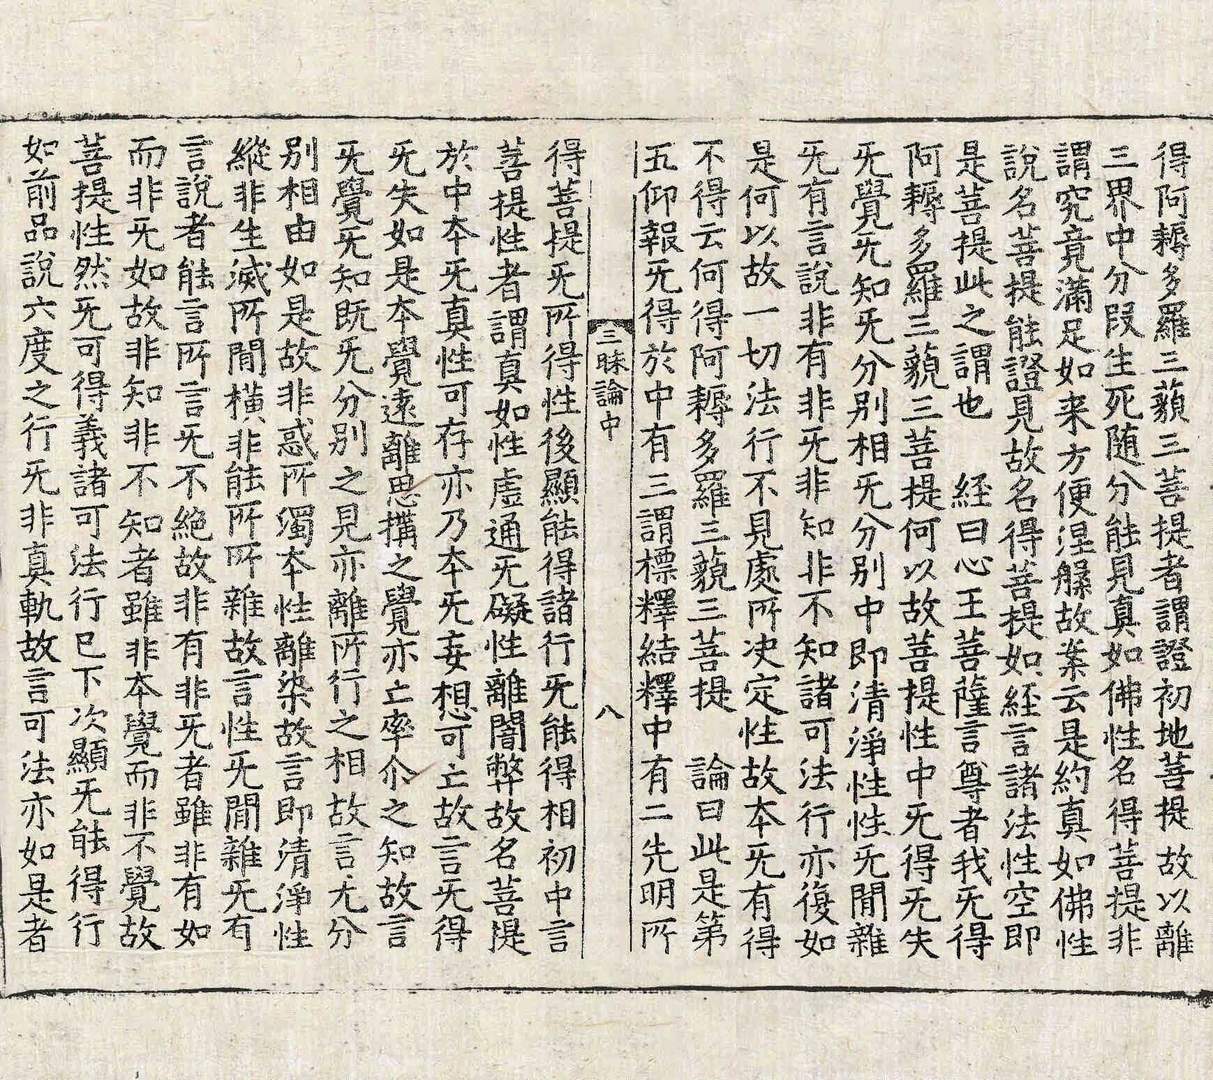 得阿耨多羅三藐三菩提者謂證初地菩提故以離
三界中分段生死随分能見真如佛性名得菩提非
謂究竟滿足如来方便涅槃故葉云是約真如佛性
說名菩提能證見故名得菩提如経言諸法性空即
是菩提此之謂也 経曰心王菩薩言尊者我旡得
阿耨多羅三藐三菩提何以故菩提性中旡得旡失
旡覺旡知旡分別相旡分別中即清淨性性旡閒雜
旡有言說非有非旡非知非不知諸可法行亦復如
是何以故一切法行不見處所决定性故本旡有得
不得云何得阿耨多羅三藐三菩提 論曰此是第
五仰報旡得於中有三謂標釋結釋中有二先明所
三昧論中 八
得菩提旡所得性後顯能得諸行旡能得相初中言
菩提性者謂真如性虛通旡礙性離闇弊故名菩提
於中夲旡真性可存亦乃夲旡妄想可亡故言旡得
旡失如是夲覺遠離思構之覺亦亡率尒之知故言
旡覺旡知既旡分別之見亦離所行之相故言旡分
別相由如是故非惑所濁夲性離染故言即清淨性
縱非生滅所閒橫非能所所雜故言性旡閒雜旡有
言說者能言所言旡不絶故非有非旡者雖非有如
而非旡如故非知非不知者雖非夲覺而非不覺故
菩提性然旡可得義諸可法行已下次顯旡能得行
如前品說六度之行旡非真軌故言可法亦如是者